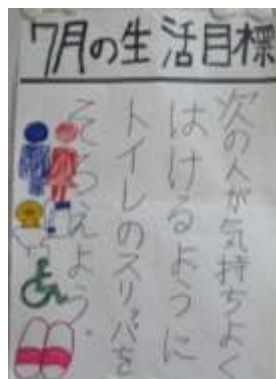 7月の生活目標
次の人が気持ちよく
はけるように
トイレのスリッパを
そろえよう。